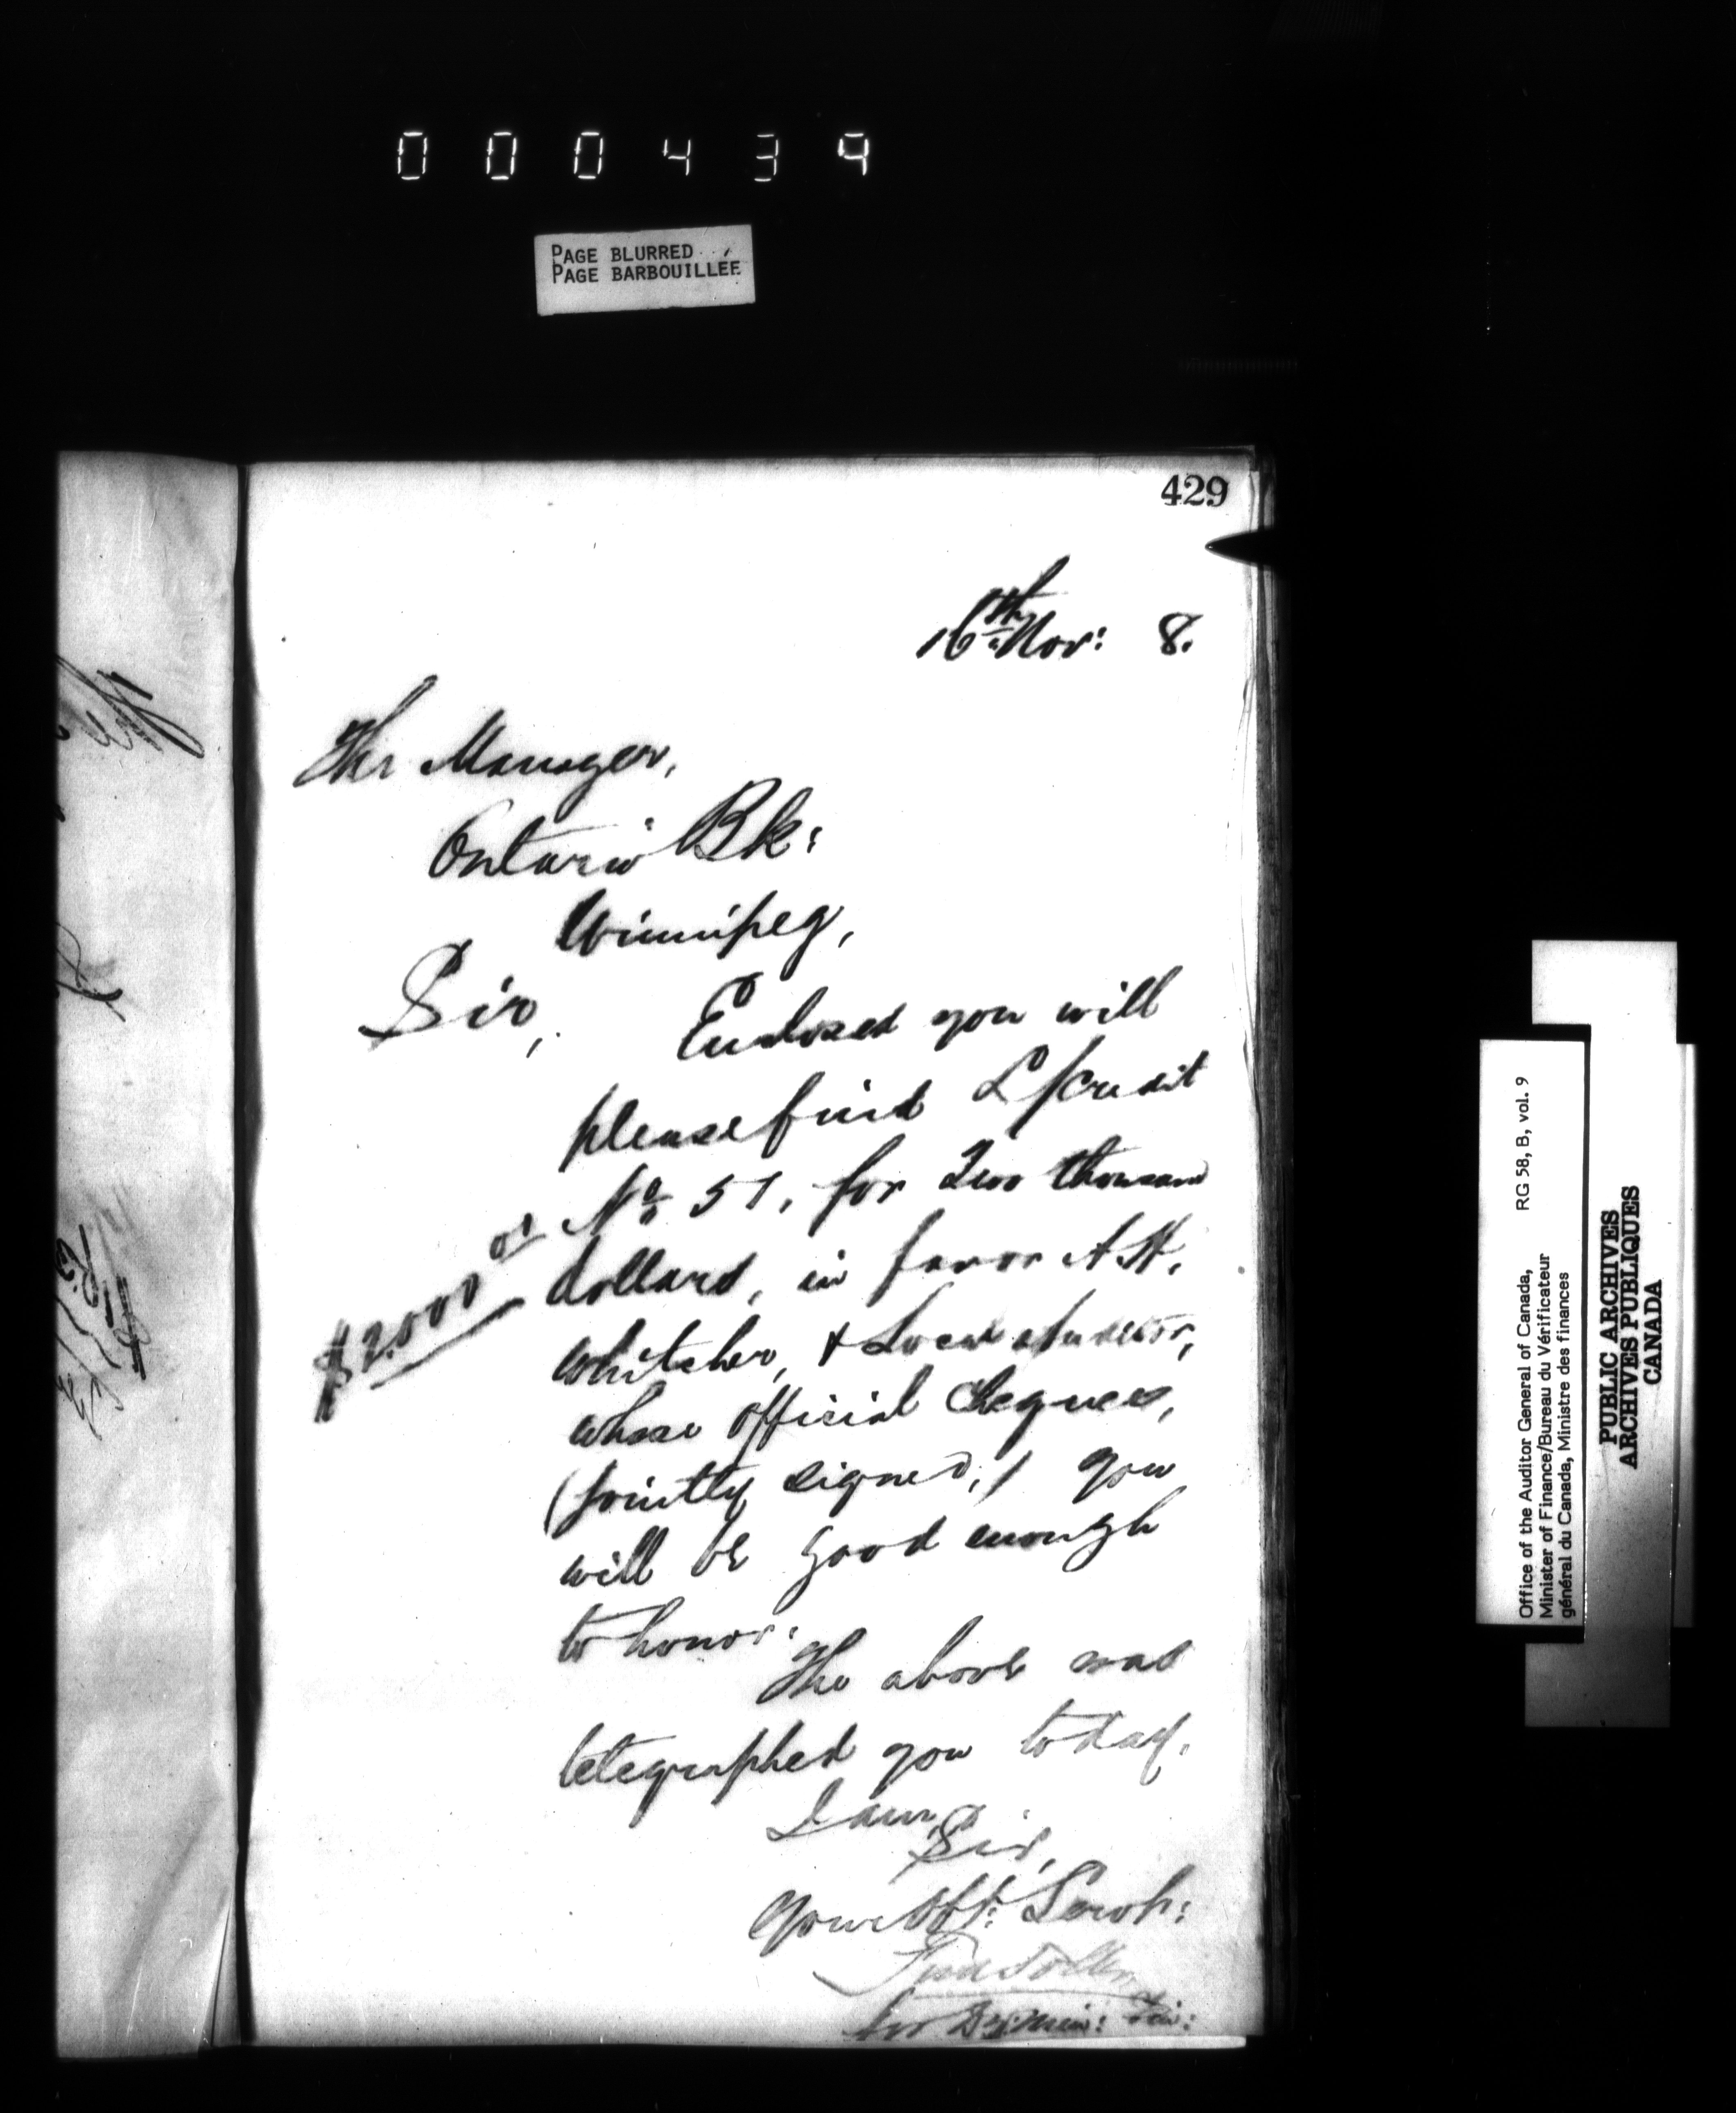 000439
PAGE BLURRED
PAGE BARBOUILLÉE
429
16th Nov: 8.
The Manager,
Ontario Bk:
Winnipeg,
Sir,
Enclosed you will
please find L/Credit
No 57, for Two thousand
$2000 00
dollars, in favor A.H.
Whitcher, & Local Auditor,
whose official Cheques,
(jointly signed,) you
will be good enough
to honor.
The above was
telegraphed you today.
I am,
Sir,
Your Obt: Servt:
for Dy: Min: Fin:
Office of the Auditor General of Canada, RG 58, B, vol. 9
Minister of Finance/Bureau du Vérificateur
général du Canada, Ministre des finances
PUBLIC ARCHIVES
ARCHIVES PUBLIQUES
CANADA